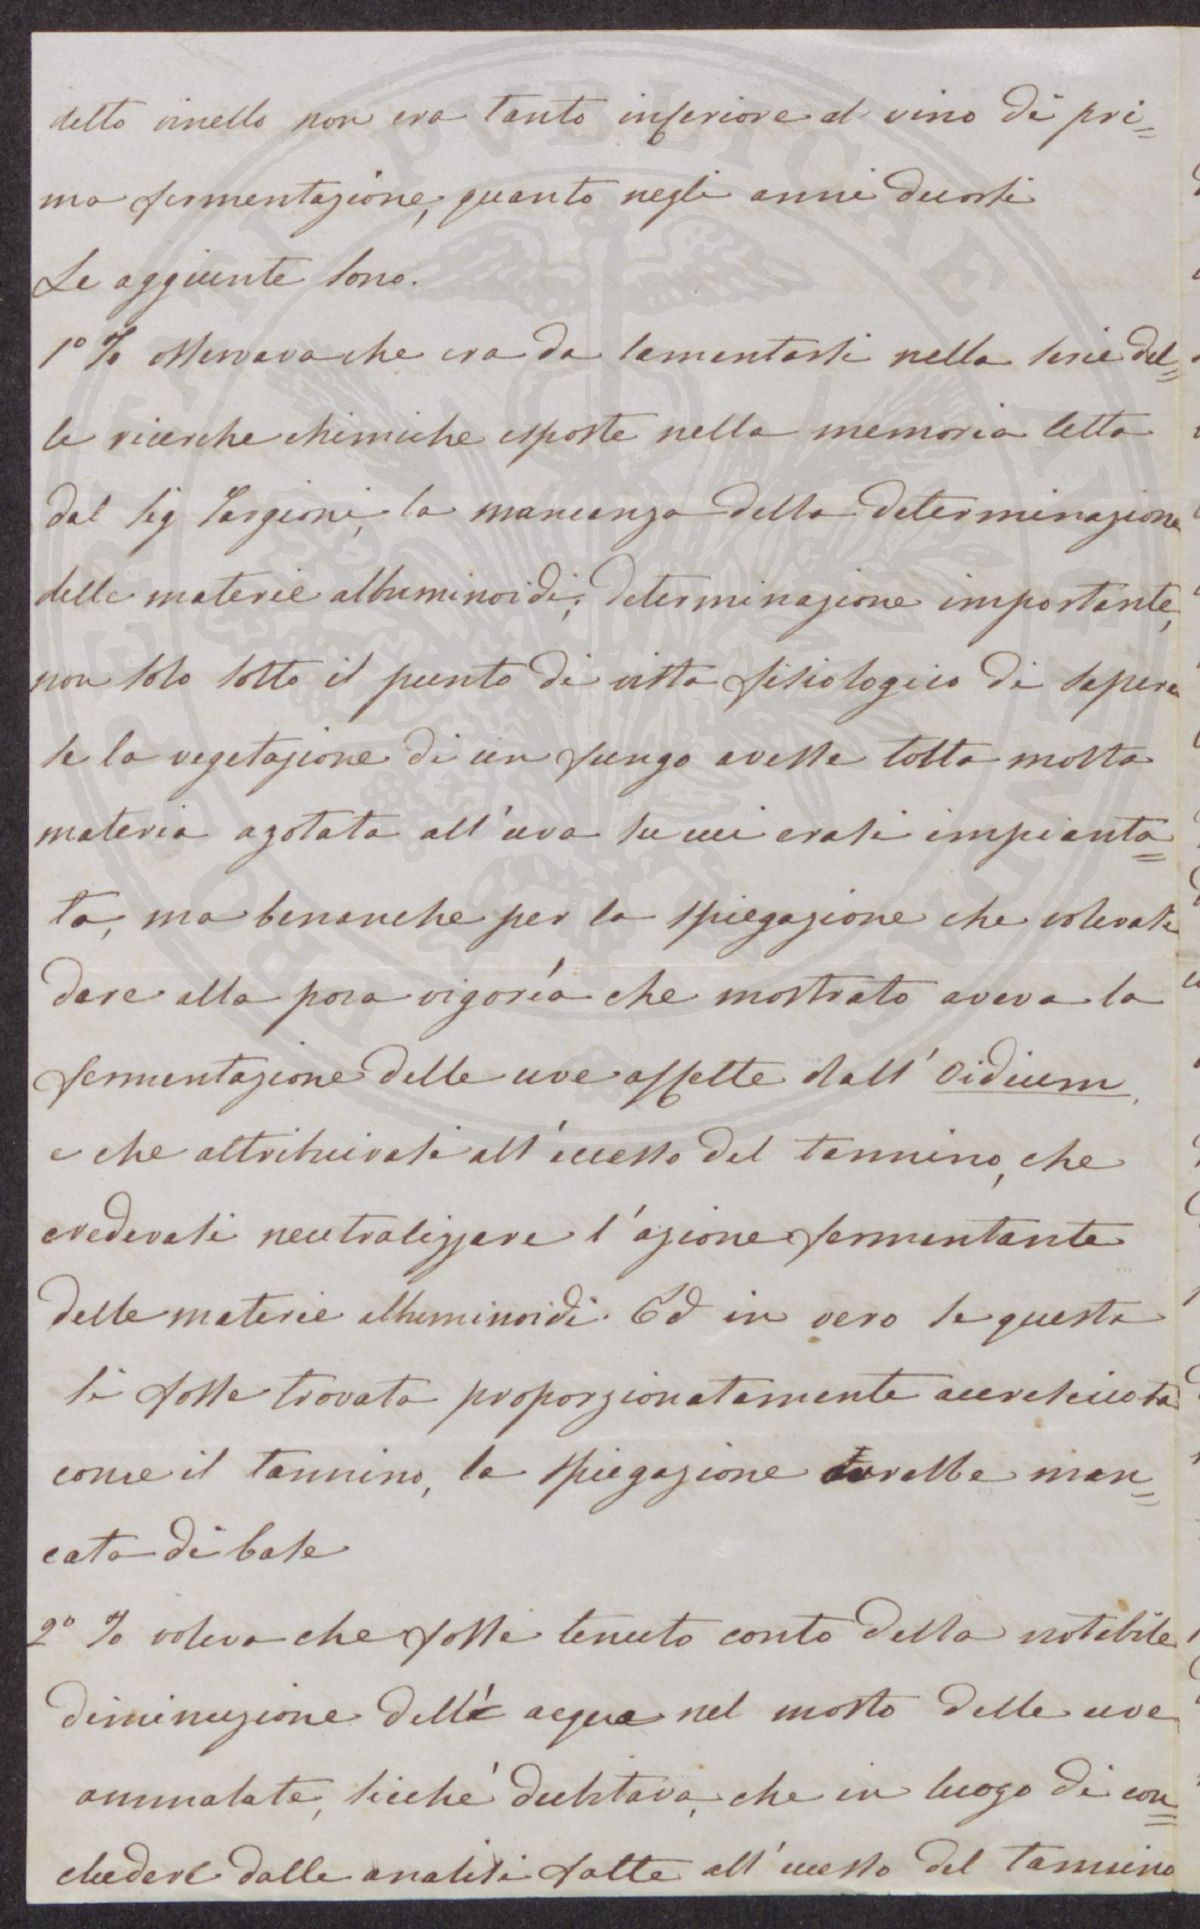 detto vinello non era tanto inferiore al vino di pri=
ma fermentazione, quanto negli anni decorsi
Le aggiunte sono.
1º Io osservava che era da lamentarsi nella serie del=
le ricerche chimiche esposte nella memoria letta
dal Sig Targioni, la mancanza della determinazione
delle materie albuminoidi; determinazione importante,
non solo sotto il punto di vista fisiologico di sapere
se la vegetazione di un fungo avesse tolta molta
materia azotata all'uva su cui erasi impianta=
ta, ma benanche per la spiegazione che volevasi
dare alla poca vigoría che mostrato aveva la
fermentazione delle uve affette dall' Oidium,
e che attribuivasi all'eccesso del tannino, che
credevasi neutralizzare l'azione fermentante
delle materie albuminoidi. Ed in vero se questa
si fosse trovata proporzionatamente accresciuta
come il tannino, la spiegazione sarebbe man=
cata di base
2º Io voleva che fosse tenuto conto della notabile
diminuzione dell' acqua nel mosto delle uve
ammalate, sicché dubitava, che in luogo di con=
chiudere dalle analisi fatte all'eccesso del tannino